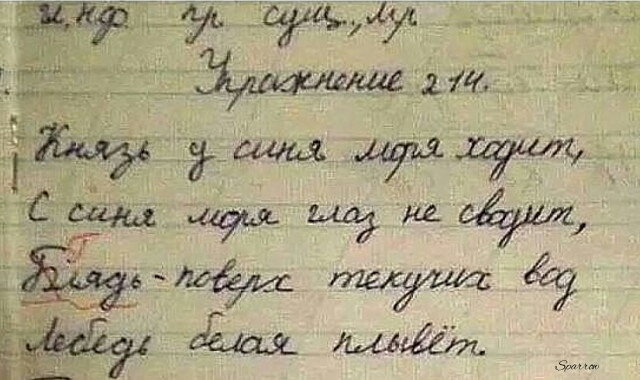 и, нф пр сущ., мр
Упражнение 214.
Князь у синя моря ходит,
С синя моря глаз не сводит,
Г
Блядь - поверх текучих вод
Лебедь белая плывёт.
Sparrow